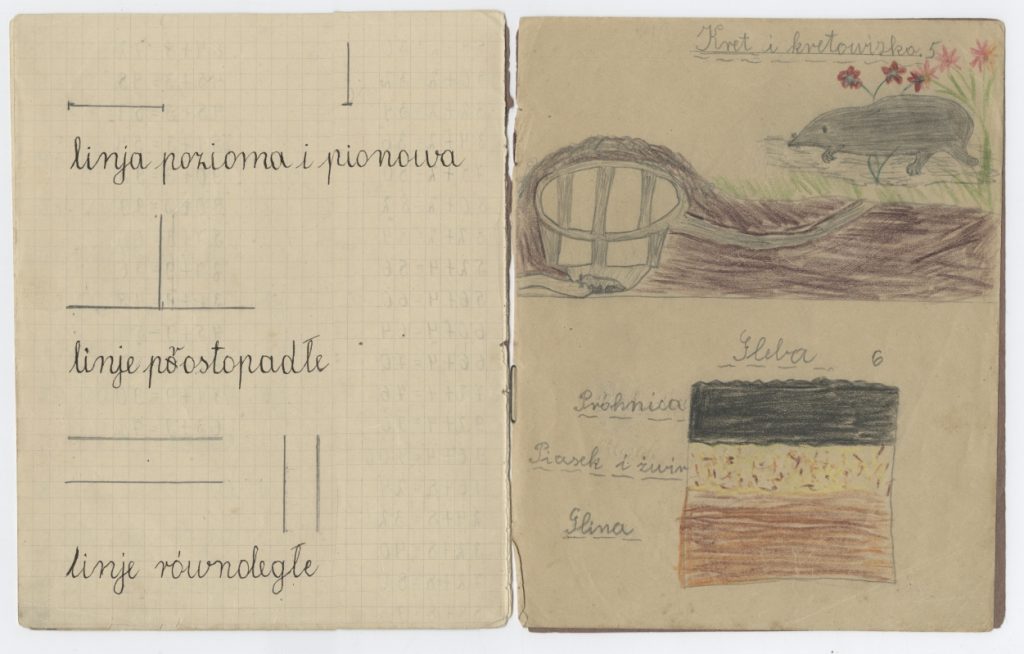 linja pozioma i pionowa
linje prostopadłe
linje równoległe
Kret i kretowiska. 5
Gleba 6
Próhnica
Piasek i żwir
Glina